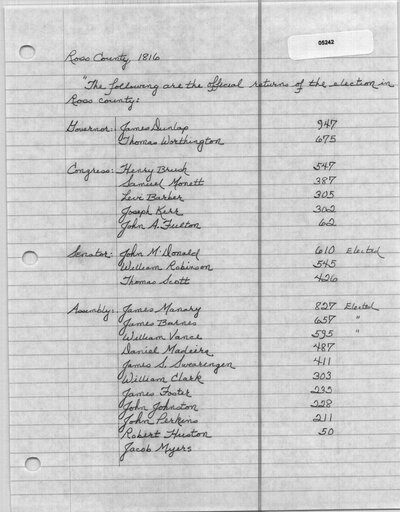 05242
Ross County, 1816
"The following are the official returns of the election in
Ross county:
Governor: James Dunlap 947
Thomas Worthington 675
Congress: Henry Brush 547
Samuel Monett 387
Levi Barber 305
Joseph Kerr 302
John A. Fulton 62
Senator: John McDonald 610 Elected
William Robinson 545
Thomas Scott 426
Assembly: James Manary 827 Elected
James Barnes 657 "
William Vance 535 "
Daniel Madeira 487
James S. Swearengen 411
William Clark 303
James Foster 235
John Johnston 228
John Perkins 211
Robert Huston 50
Jacob Myers